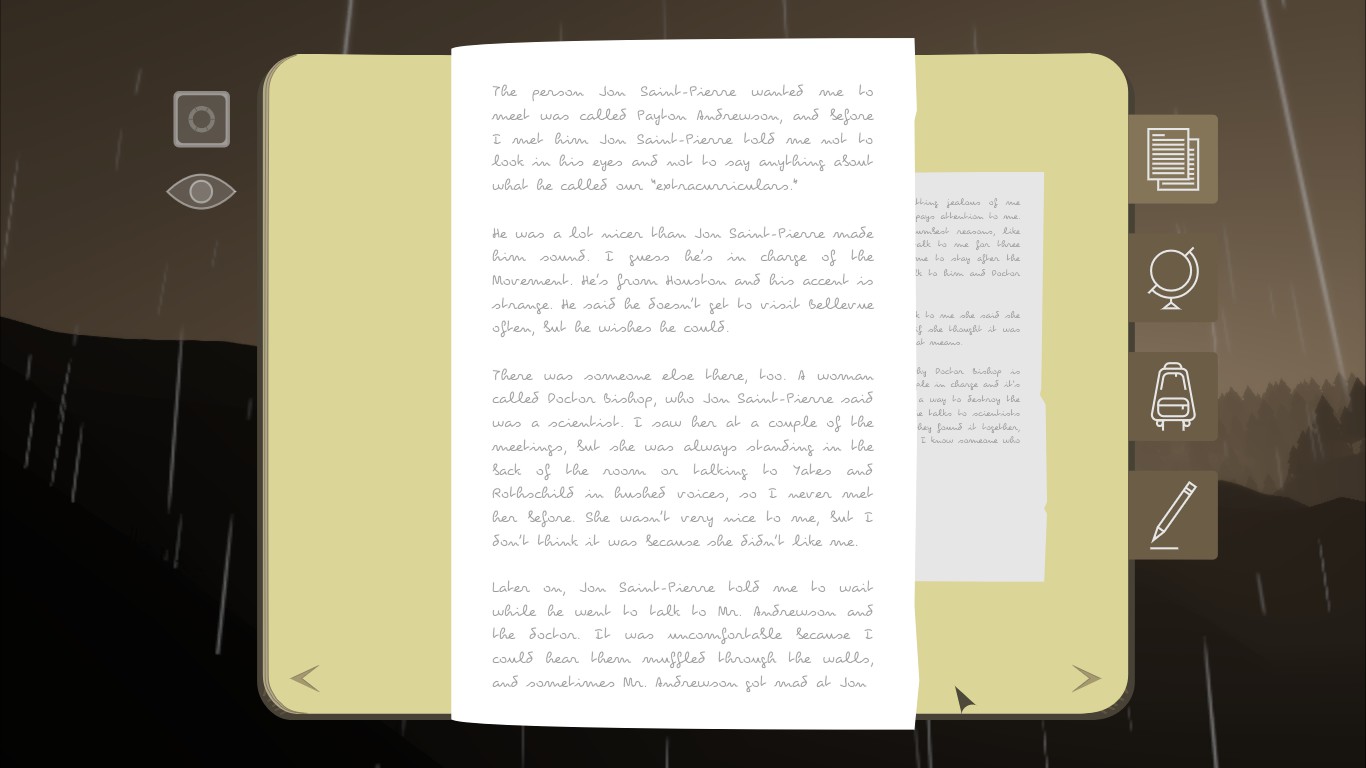 The person Jon Saint-Pierre wanted me to
meet was called Payton Andrewson, and before
I met him Jon Saint-Pierre told me not to
look in his eyes and not to say anything about
what he called our "extracurriculars."
He was a lot nicer than Jon Saint-Pierre made
him sound. I guess he's in charge of the
Movement. He's from Houston and his accent is
strange. He said he doesn't get to visit Bellevue
often, but he wishes he could.
There was someone else there, too. A woman
called Doctor Bishop, who Jon Saint-Pierre said
was a scientist. I saw her at a couple of the
meetings, but she was always standing in the
back of the room or talking to Yates and
Rothschild in hushed voices, so I never met
her before. She wasn't very nice to me, but I
don't think it was because she didn't like me.
Later on, Jon Saint-Pierre told me to wait
while he went to talk to Mr. Andrewson and
the doctor. It was uncomfortable because I
could hear them muffled through the walls,
and sometimes Mr. Andrewson got mad at Jon
thing jealous of me
pays attention to me.
reasons, like
talk to me for three
me to stay after the
to him and Doctor
to me she said she
if she thought it was
means.
Doctor Bishop is
in charge and it's
a way to destroy the
talks to scientists
they found it together,
I know someone who